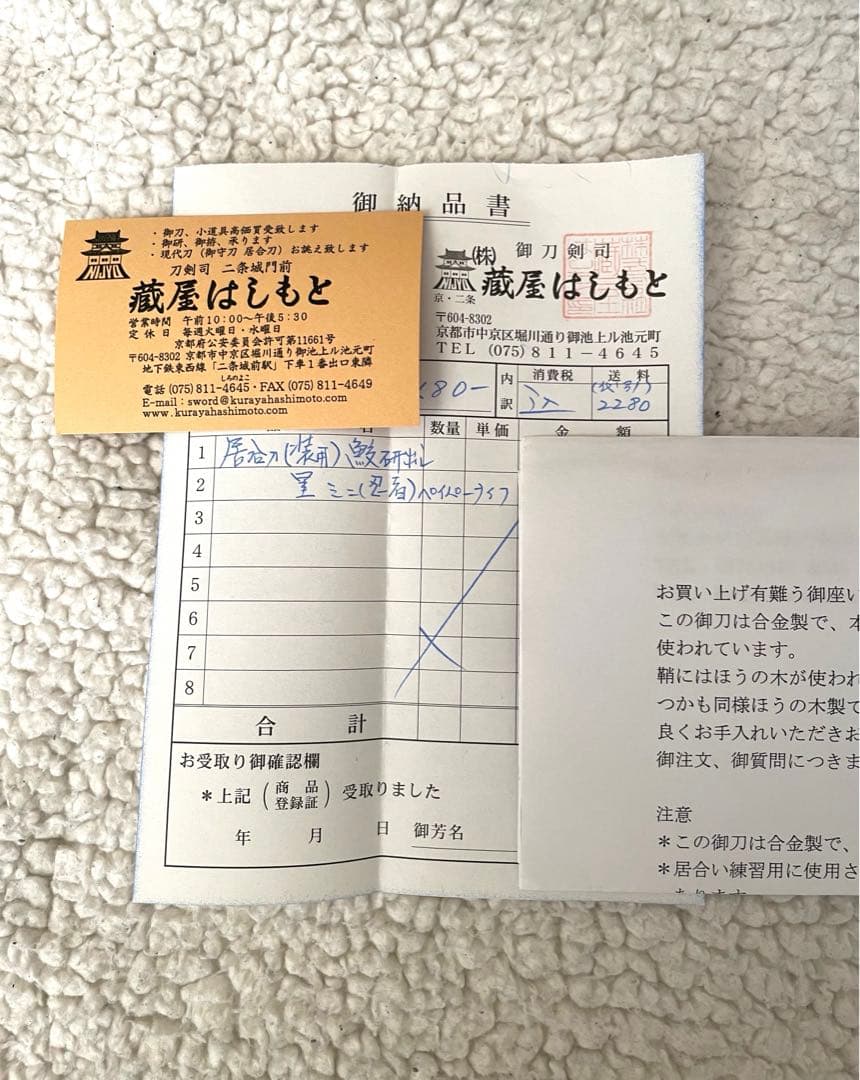 御納品書
・御刀、小道具高価買受致します
・御研、御拵、承ります
・現代刀（御守刀 居合刀）お誂え致します
NIJYO
刀剣司 二条城門前
蔵屋はしもと
営業時間 午前10:00〜午後5:30
定休日 毎週火曜日・水曜日
京都府公安委員会許可第11661号
〒604-8302 京都市中京区堀川通り御池上ル池元町
地下鉄東西線「二条城前駅」下車1番出口東隣
しろのよこ
電話(075)811-4645・FAX(075)811-4649
E-mail：sword@kurayahashimoto.com
www.kurayahashimoto.com
(株) 御刀剣司
蔵屋はしもと
京・二条
〒604-8302
京都市中京区堀川通り御池上ル池元町
TEL (075) 811-4645
80-
内訳 消費税 送料
2280
数量 単価 金額
1 居合刀(装用) 鮫研出し
2 黒 ミニ(忍者)ペイパーナイフ
3
4
5
6
7
8
合計
お受取り御確認欄
＊上記（商品 登録証）受取りました
年 月 日 御芳名
お買い上げ有難う御座い
この御刀は合金製で、
使われています。
鞘にはほうの木が使われ
つかも同様ほうの木製で
良くお手入れいただきお
御注文、御質問につきま
注意
＊この御刀は合金製で、
＊居合い練習用に使用さ